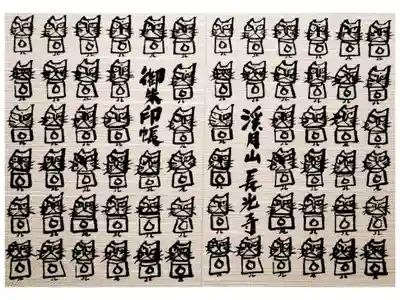 渓月山長光寺
御朱印帳